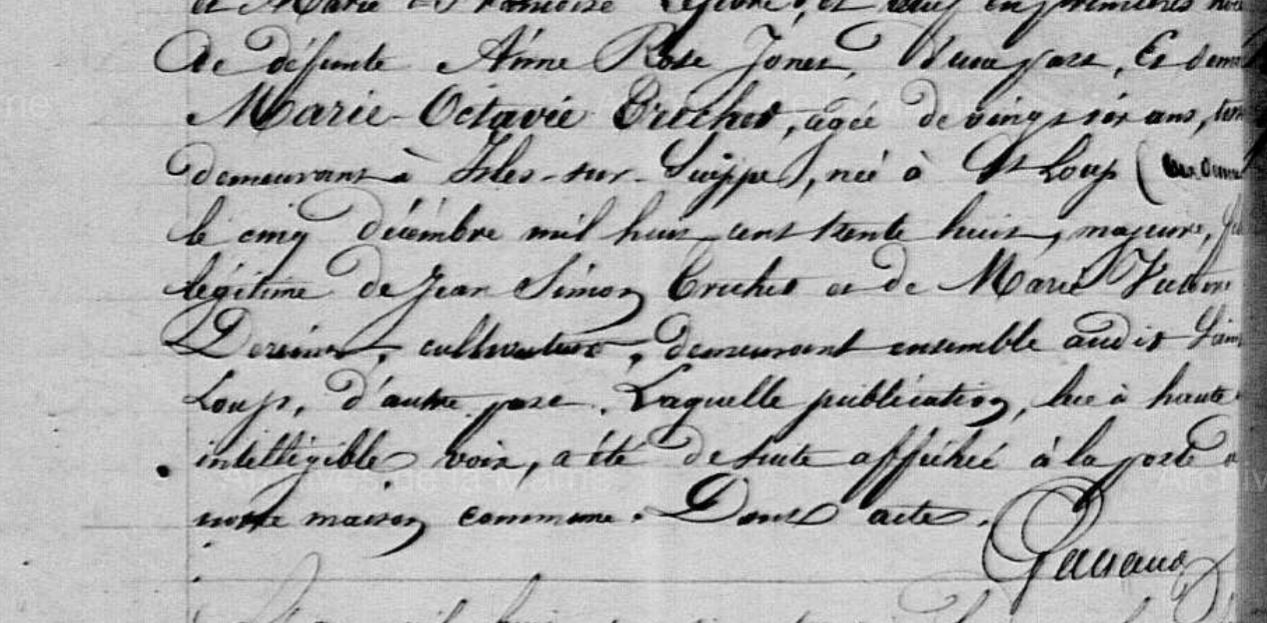 et Marie Françoise Lefevre, et veuf en premières
De défunte Anne Rose Jones, d'une part, Et dem
Marie-Octavie Crochet, agée de vingt six ans,
demeurant à Isles-sur-Suippe, née à St Loup (
le cinq décembre mil huit cent trente huit, majeure,
légitime de Jean Simon Crochet et de Marie
cultivateurs, demeurant ensemble audit Sain
Loup, d'autre part. Laquelle publication, lue à haute
intelligible voix, a été de suite affichée à la porte
notre maison commune. Dont acte.